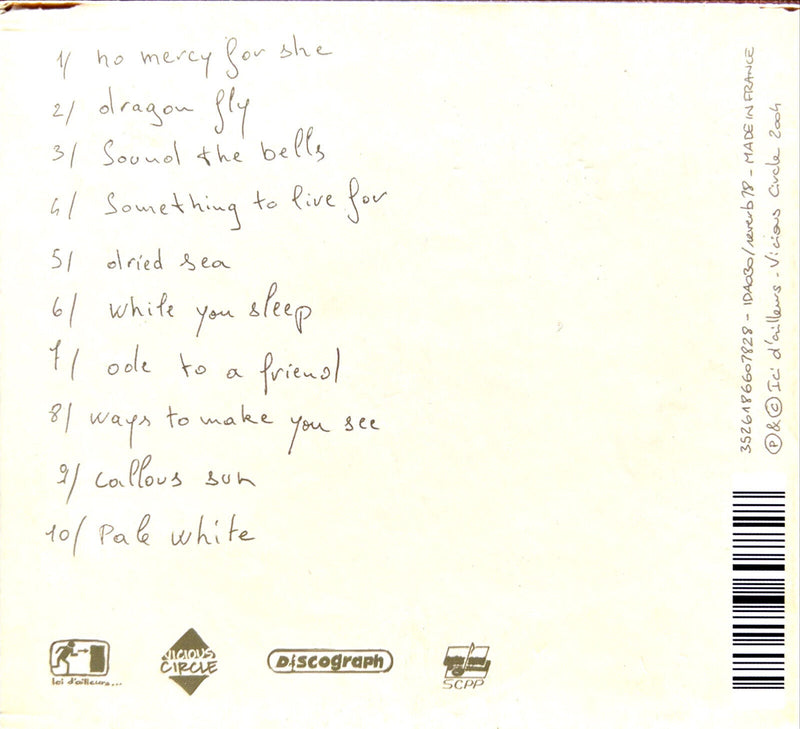 1/ no mercy for she
2/ dragon fly
3/ Sound the bells
4/ Something to live for
5/ dried sea
6/ while you sleep
7/ ode to a friend
8/ ways to make you see
9/ callous sun
10/ Pale white
3526186607828 - IDA030/reverb78 - MADE IN FRANCE
℗ & © Ici d'ailleurs - Vicious Circle 2004
Ici d'ailleurs...
VICIOUS
CIRCLE
Discograph
SCPP